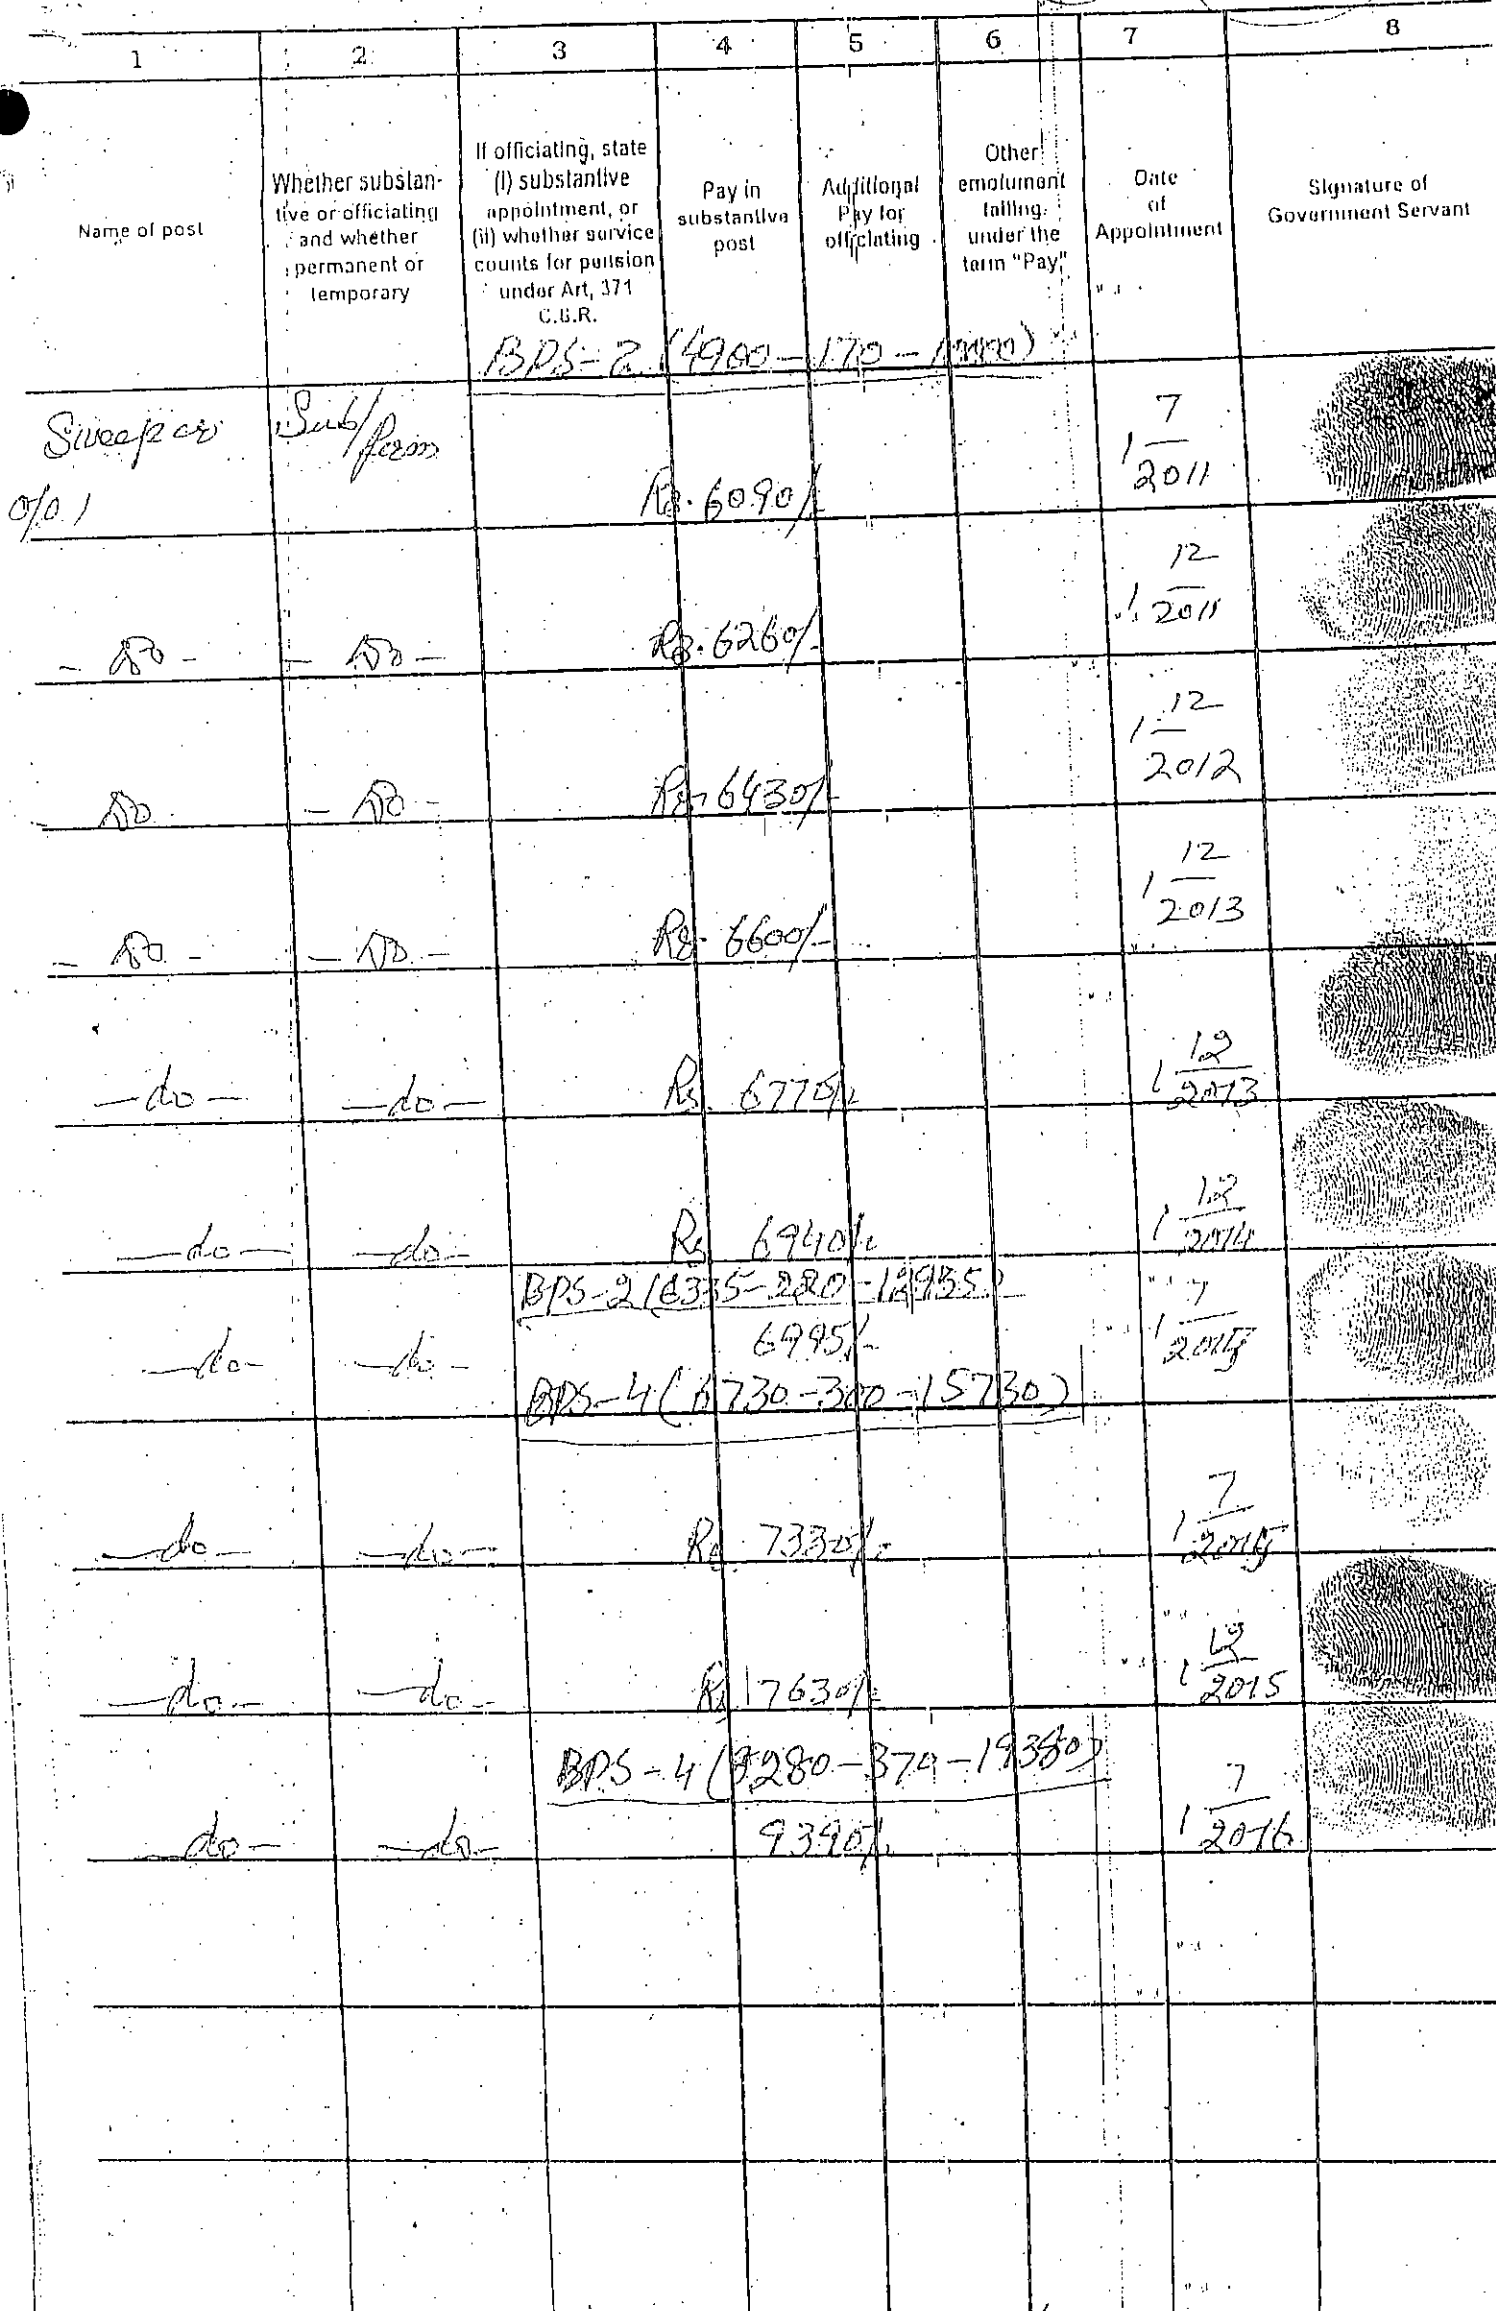 1 2 3 4 5 6 7 8
Name of post
Whether substan-
tive or officiating
and whether
permanent or
temporary
If officiating, state
(i) substantive
appointment, or
(ii) whether service
counts for pension
under Art, 371
C.S.R.
Pay in
substantive
post
Additional
Pay for
officiating
Other
emolument
falling
under the
term "Pay"
Date
of
Appointment
Signature of
Government Servant
BPS-2 (4900-170-
Sweeper Sub/perm Rs. 6090/- 1 7/2011
- Do - - Do - Rs. 6260/- 1 12/2011
Do - Do - Rs. 6430/- 1 12/2012
- Do - - Do - Rs. 6600/- 1 12/2013
- do - - do - Rs. 6770/- 1 12/2013
- do - - do - Rs 6940/- 1 12/2014
BPS-2 (6335-220-12935)
- do - - do - 6995/- 1 7/2015
BPS-4 (6730-300-15730)
- do - - do - Rs 7330/- 1 7/2015
- do - - do - Rs 7630/- 1 12/2015
BPS-4 (8280-370-19380)
- do - - do - 9390/- 1 7/2016